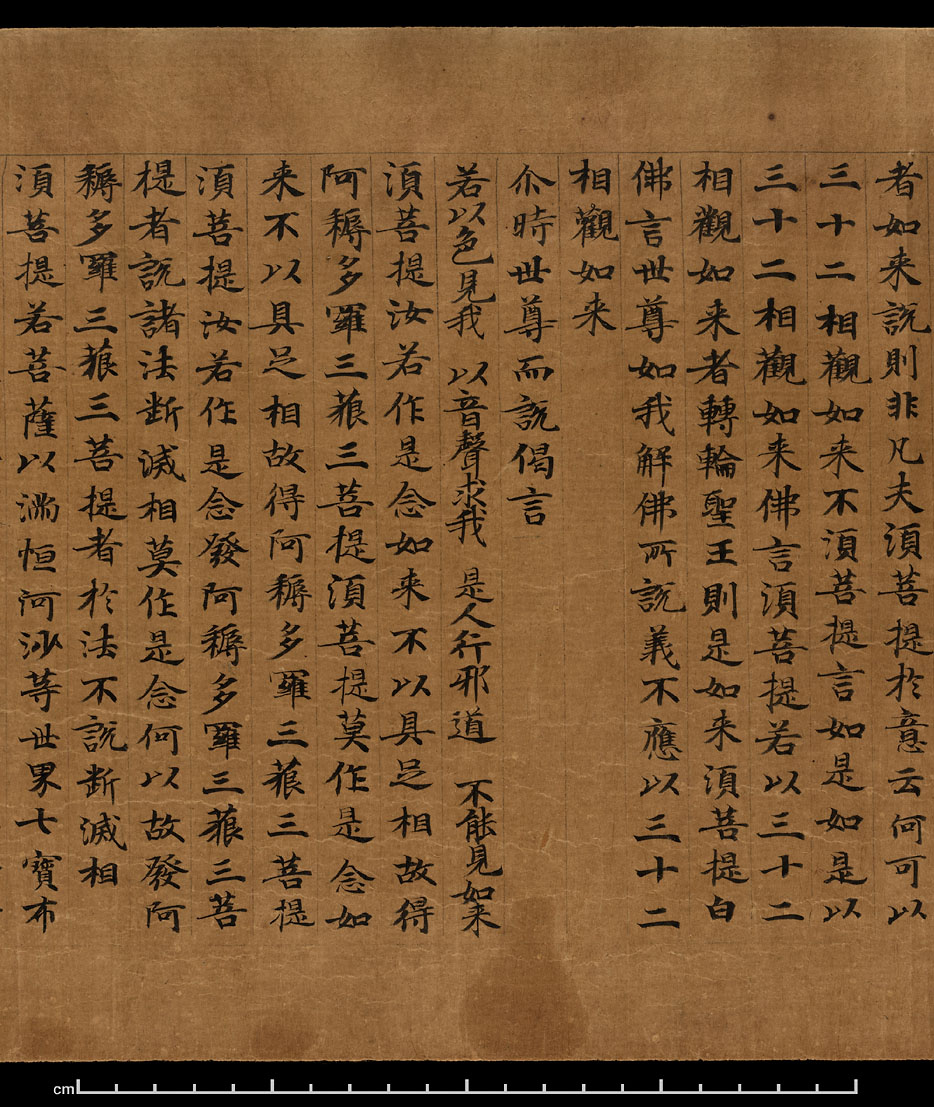 者如来說則非凡夫湏菩提於意云何可以
三十二相觀如来不湏菩提言如是如是以
三十二相觀如来佛言湏菩提若以三十二
相觀如来者轉輪聖王則是如来湏菩提白
佛言世尊如我解佛所說義不應以三十二
相觀如来
尒時世尊而說偈言
若以色見我 以音聲求我 是人行邪道 不能見如来
湏菩提汝若作是念如来不以具足相故得
阿耨多羅三藐三菩提湏菩提莫作是念如
来不以具足相故得阿耨多羅三藐三菩提
湏菩提汝若作是念發阿耨多羅三藐三菩
提者說諸法断滅相莫作是念何以故發阿
耨多羅三藐三菩提者於法不說断滅相
湏菩提若菩薩以満恒河沙等世界七寶布
cm